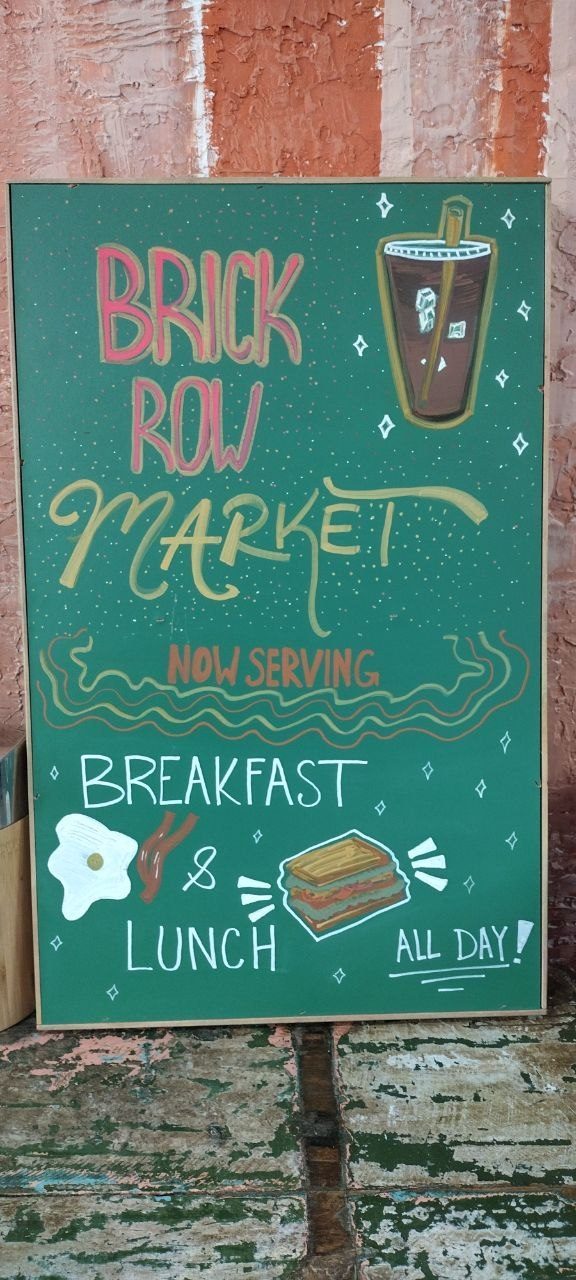 BRICK
ROW
MARKET
NOW SERVING
BREAKFAST
&
LUNCH
ALL DAY!